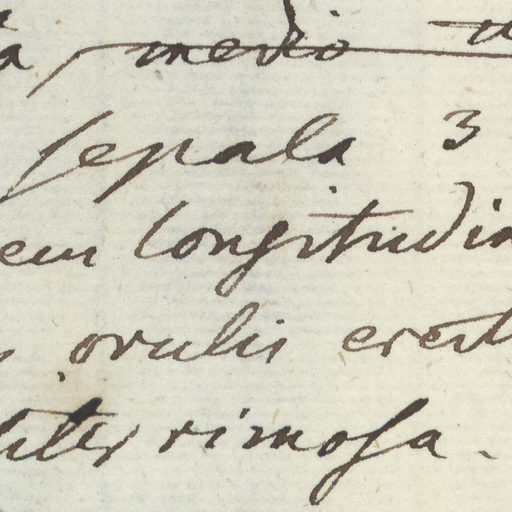 medio
sepala 3
em longitudin
ovulis erect
liter rimosa.